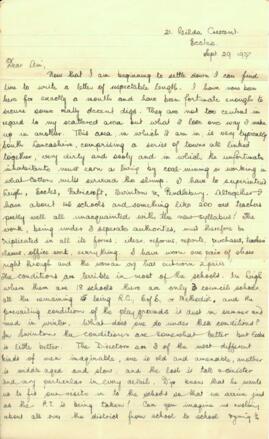 21. Reilda Crescent
Eccles.
Sept 29. 1937
Dear Ani,
Now that I am beginning to settle down I can find
time to write a letter of respectable length. I have now been
here for exactly a month and have been fortunate enough to
secure some really decent digs. They are not too central in
regard to my scattered area but what I lose one way I make
up in another. This area in which I am in is very typically
South Lancashire, comprising a series of towns all linked
together, very dirty and sooty and in which the unfortunate
inhabitants must earn a living by coal mining or working in
cotton mills in the slump. I have to superintend
Leigh, Eccles, Patricroft, Swinton & Pendlebury. Altogether I
have about 46 schools and something like 200 odd teachers
pretty well all unacquainted with the new syllabus! The
work, being under 3 separate authorities, must therefore be
triplicated in all its forms; ideas, reforms, reports, purchases, teachers
classes, office work, everything. I have worn one pair of shoes
right through and the wee car has burnt a port.
The conditions are terrible in most of the schools. In Leigh
where there are 18 schools there are only 3 council schools
all the remaining 15 being R.C., C of E. or Methodist, and the
prevailing conditions of the playgrounds is dust in summer and
mud in winter. What does one do under those conditions?
In Swinton the conditions are somewhat better but Eccles
is little better. The Directors are 3 of the most different
kinds of men imaginable, one is old and amenable, another
is middle aged and slow and the last is
and very particular in every detail. Tips know that he wants
us to his in the schools so that we arrive just
as the P.T. is being taken! Can you imagine us rushing
about all over the district from school to school trying to